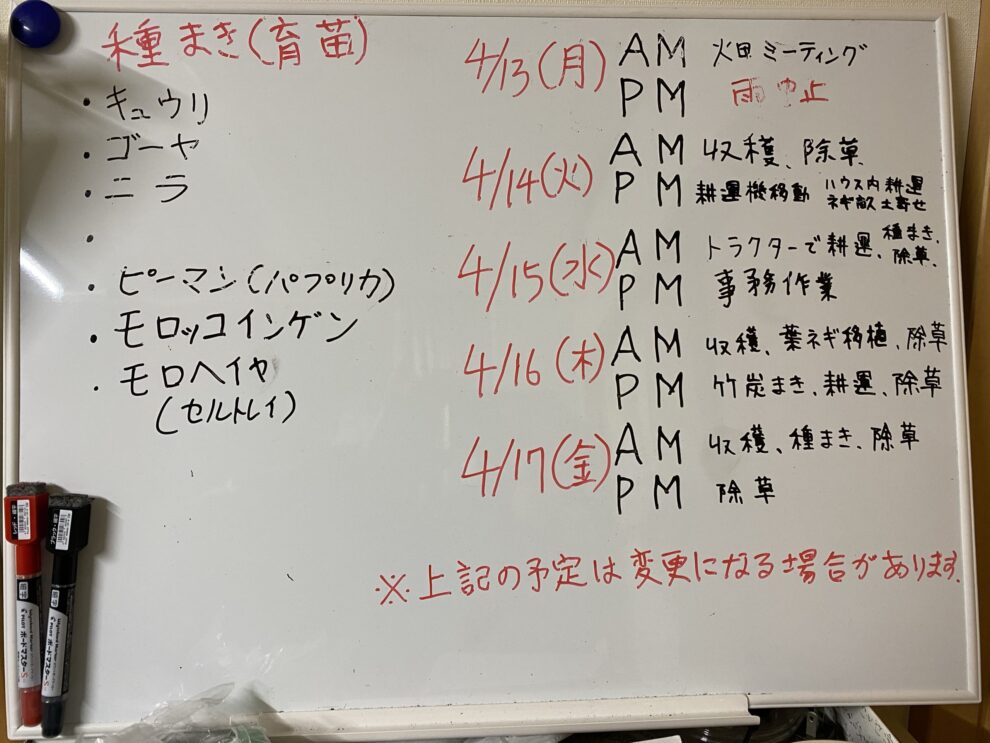 種まき(育苗)
・キュウリ
・ゴーヤ
・ニラ
・
・ピーマン(パプリカ)
・モロッコインゲン
・モロヘイヤ
(セルトレイ)
4/13(月) AM 火田ミーティング
PM 雨中止
4/14(火) AM 収穫、除草
PM 耕運機移動 ハウス内耕運
ネギ畝土寄せ
4/15(水) AM トラクターで耕運、種まき、
除草、
PM 事務作業
4/16(木) AM 収穫、葉ネギ移植、除草
PM 竹炭まき、耕運、除草
4/17(金) AM 収穫、種まき、除草
PM 除草
※上記の予定は変更になる場合があります。
PILOT ボードマスターS
PILOT ボードマスターS